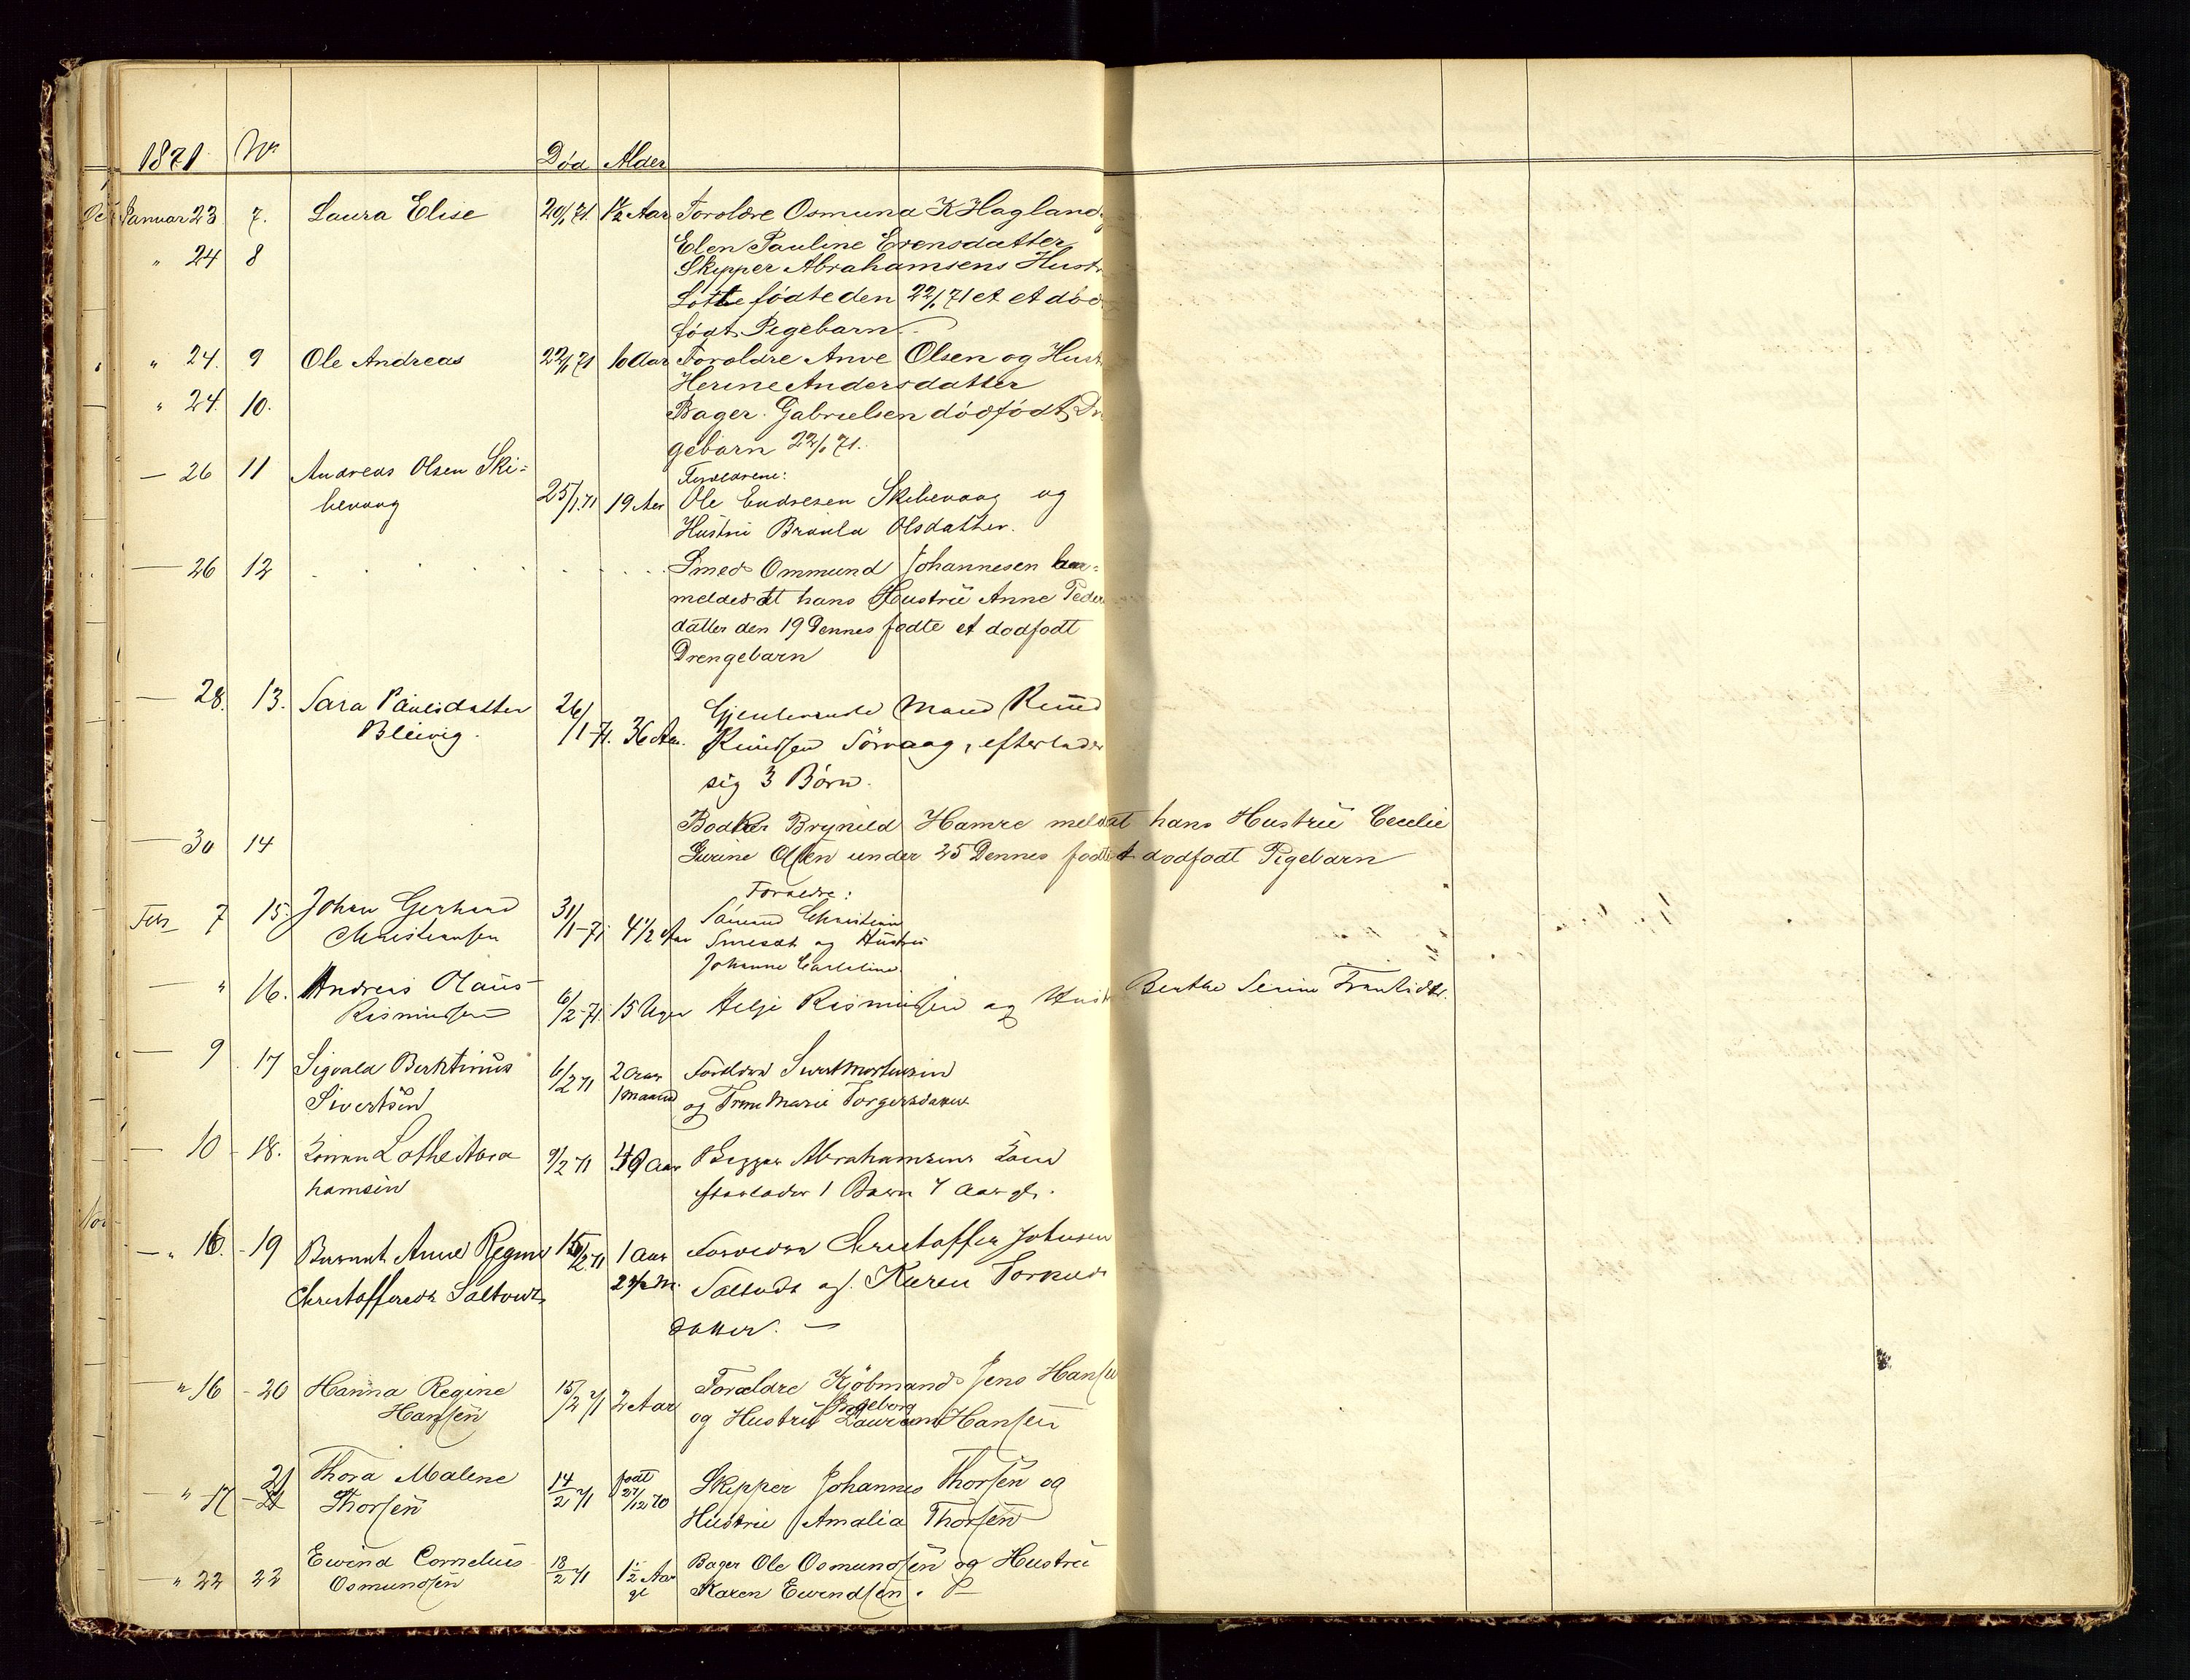 1871 Nr Død Alder
Januar 23 7. Laura Elise 20/1 71 1½ Aar Foroldre Osmund K Hagland
Elen Pauline Evensdatter
" 24 8 Skipper Abrahamsens Hustr
Lotte fødte den 22/1 71 et et død
født Pigebarn
" 24. 9 Ole Andreas 22/1 71 10 Aar Foroldre Anve Olsen og Hust
Herine Andersdatter
" 24. 10. Bager Gabrielsen dødfødt Dr
gebarn 22/1 71.
— 26 11 Andreas Olsen Ski=
Forældrene:
bevaag 25/1 71 19 Aar Ole Endresen Skibevaag og
Hustru Olsdatter.
— 26 12 Smed Ommund Johannesen
meldes at hans Hustrü Anne Peder
datter den 19 Dennes fødte et dodfodt
Drengebarn
— 28. 13. Sara Paulsdatter 26/1-71. 36 Aar. Gjenlevende Mand Knud
Bleivig. Knudsen Sörvaag, efterlader
sig 3 Børn.
Bodker Brynild Hamre meldt at hans Hustrü Cecelie
— 30 14 Gurine Olsen under 25 Dennes fodte et dodfodt Pigebarn
Foraldre:
Feb 7 15. Johan Gerhard 31/1-71 4½ Aar Christian
Christiansen og Hustru
Johanne
— " 16. Andreas Olaüs 6/2-71. 15 Uger Helje Rasmussen og Hust Berthe Serine
Rasmussen
— 9 17 Sigvald Berktinus 6/2 71 2 Aar Forældre Sivert Mortensen
Sivertsen 1 Maaned og Trine Marie Torgersdatter
— 10 18. Lothe Abra 9/2 71 40 Aar Skipper Abrahamsens
hamsen 1 Barn 7 Aar gl.
— " 16. 19 Anne Regine 15/2 71 1 Aar Foroldre Christoffer Johnsen
2½ M. og Karen Torkels
Christoffersdr datter. —
— " 16 - 20 Hanna Regine 15/2 71 2 Aar Foraldre Kjöbmand Jens Hansen
Ingeborg
Hansen og Hustrü Hansen
— " 17 21 Thora Malene 14/2 71 født 27/12 70 Skipper Johannes Thorsen og
Thorsen Hustru Amalia Thorsen
— " 22 22 Ewind Cornelius 18/2 71 1½ Aar Bager Ole Osmundsen og Hustrü
Osmundsen gl Karen Ewendsen.